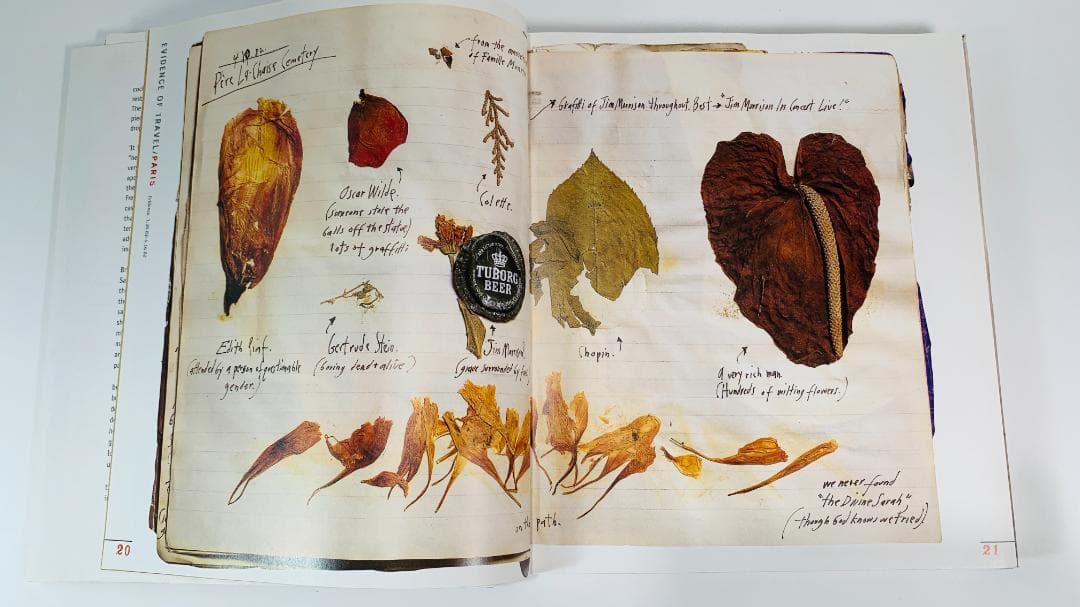 EVIDENCE OF TRAVEL/PARIS
Père La Chaise Cemetery
from the
of Famille
Oscar Wilde.
(someone stole the
balls off the statue)
lots of graffitti
Colette.
TUBORG
BEER
Edith Piaf.
(attended by a person of questionable
gender.)
Gertrude Stein.
(boring dead + alive.)
Jim Morrison
(grave surrounded by
Graffitti of Jim Morrison throughout. Best → "Jim Morrison In Concert Live!"
Chopin.
a very rich man.
(Hundreds of wilting flowers.)
on the path.
we never found
"the Divine Sarah"
(though God knows we tried)
20
21